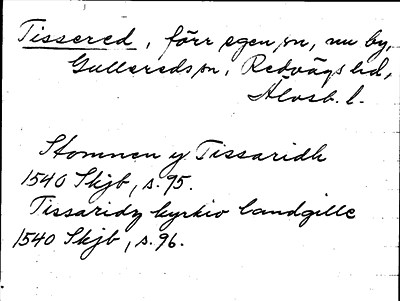 Tissered, förr egen sn, nu by,
Gullereds sn, Redvägs hd,
Älvsb. l.
Stomnen y Tissaridh
1540 Skjb, s. 95.
Tissaridz kyrkio landgille
1540 Skjb, s. 96.